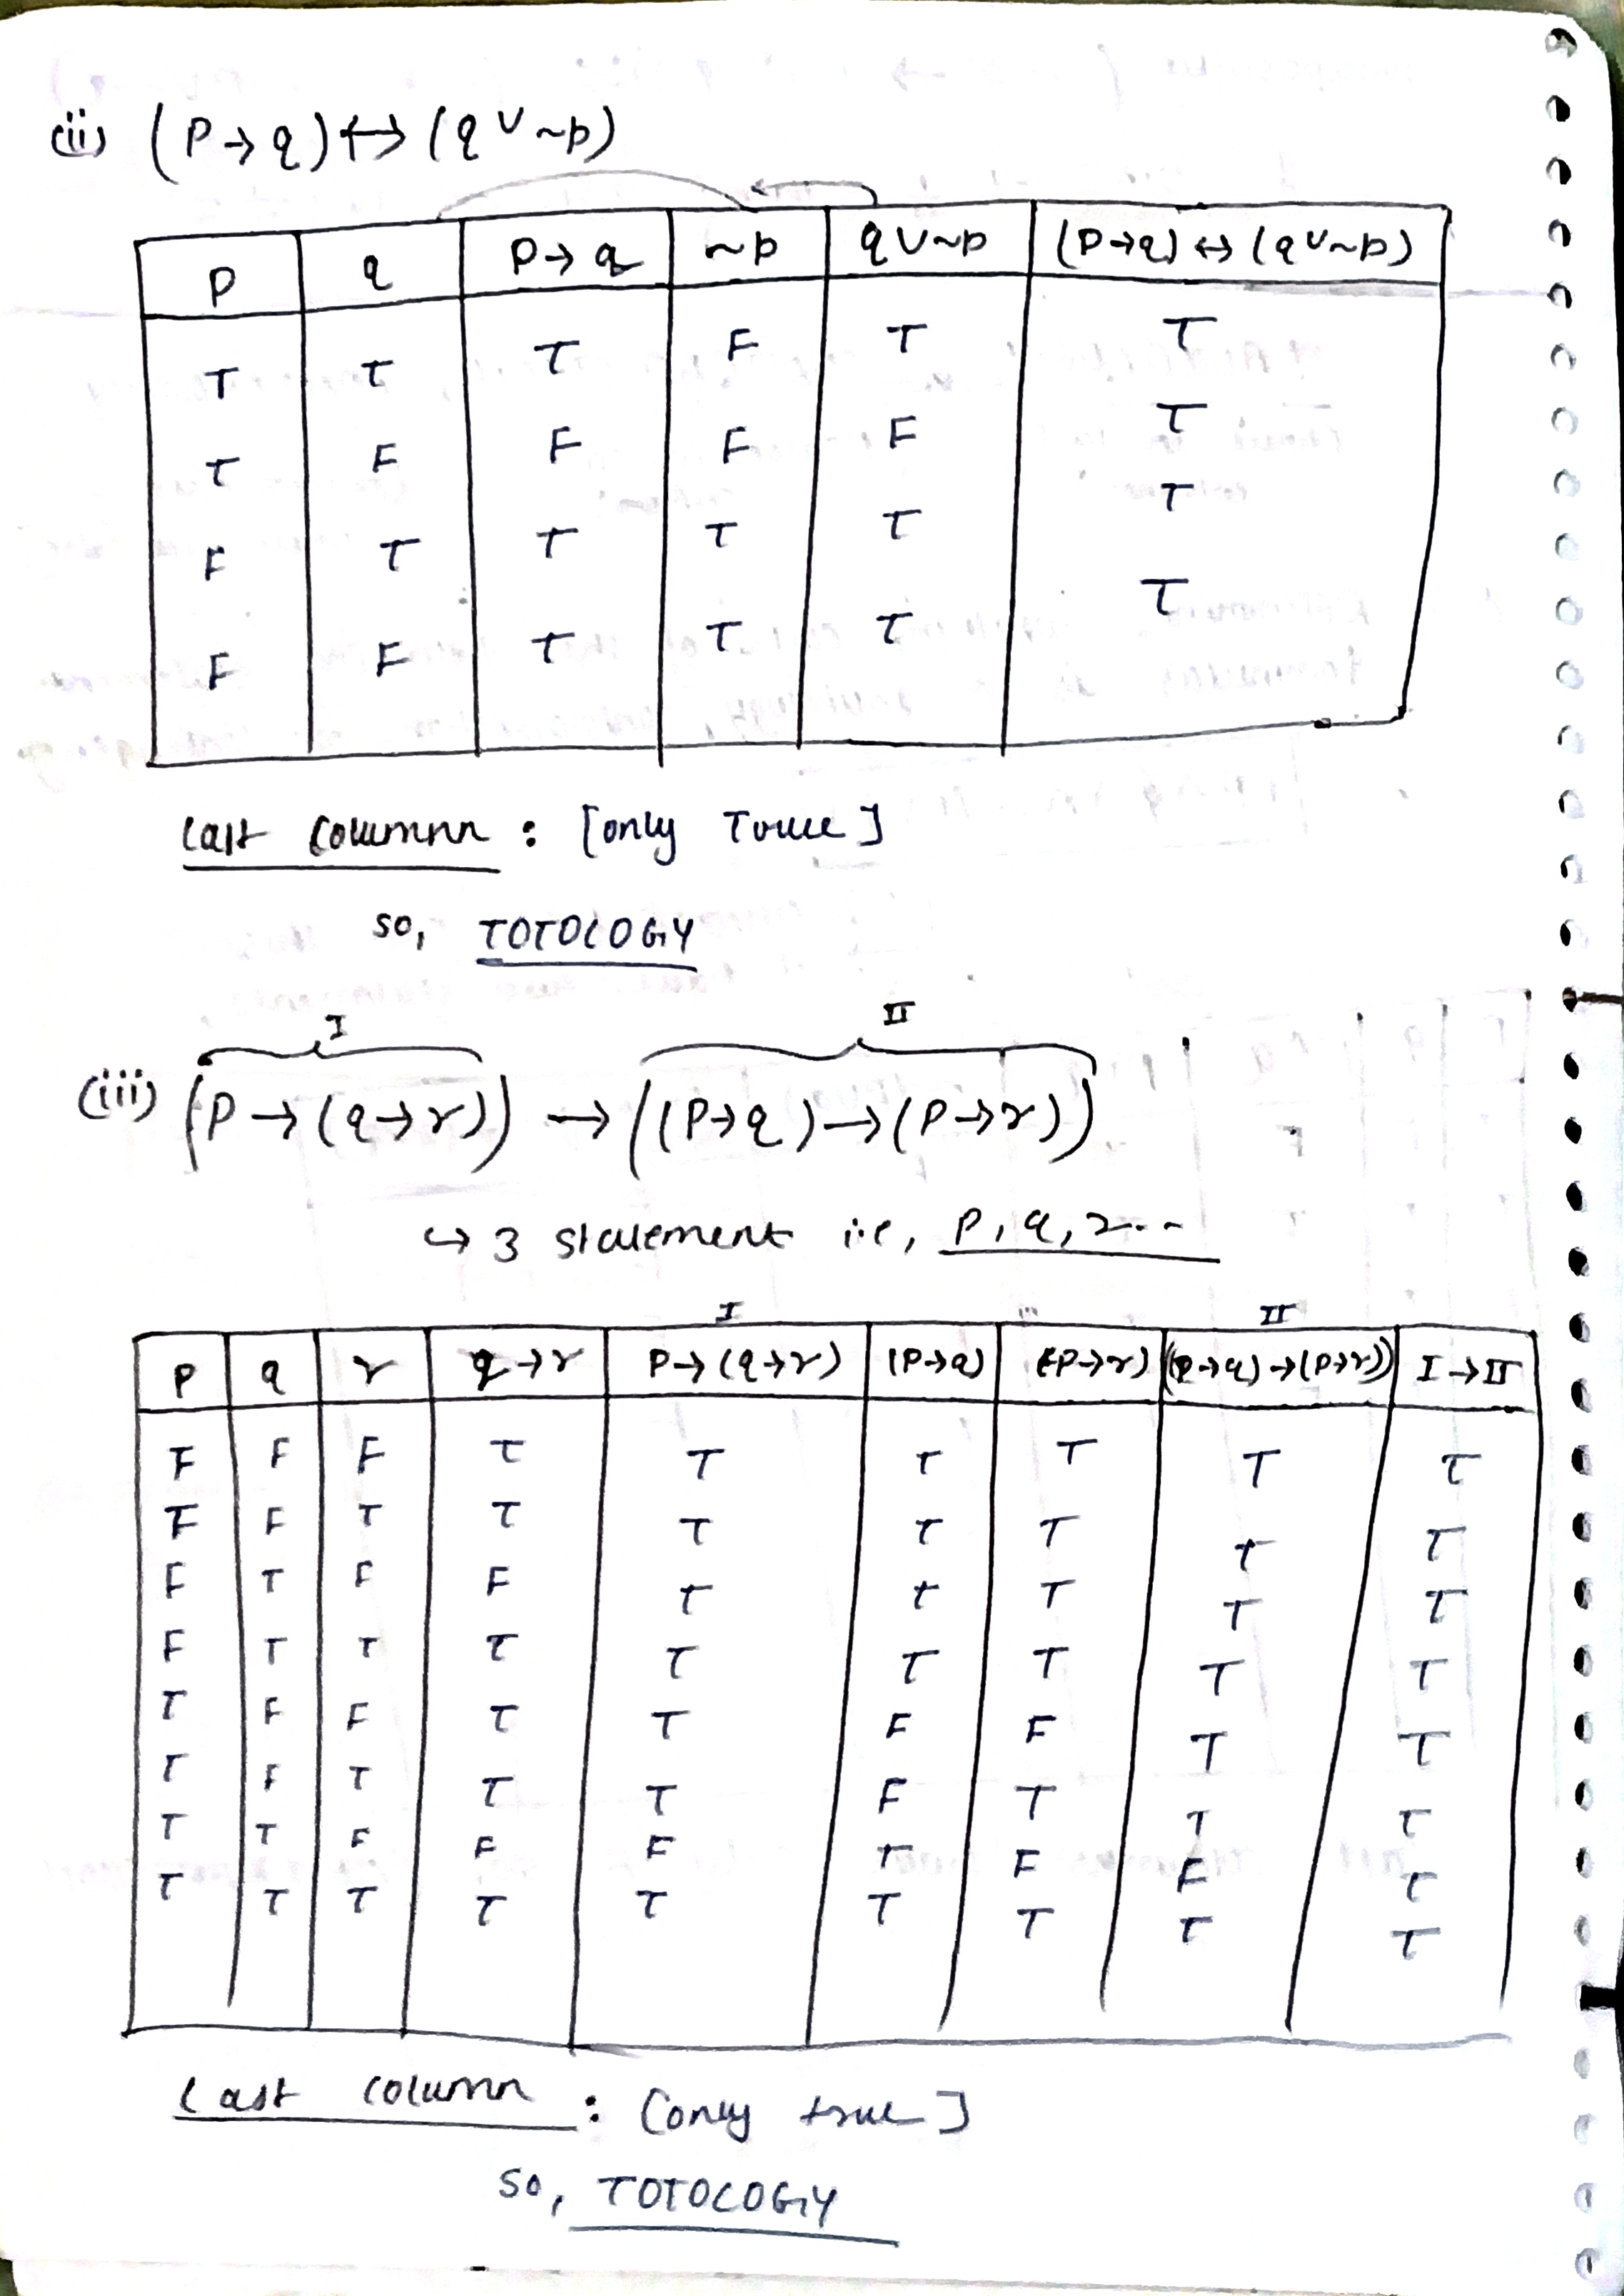 (ii) (P → q) ↔ (q ∨ ~p)
P q P → q ~p q ∨ ~p (P → q) ↔ (q ∨ ~p)
T T T F T T
T F F F F T
F T T T T T
F F T T T T
Last Columnn : [only True]
so, TOTOLOGY
I II
(iii) (P → (q → r)) → ((P → q) → (P → r))
↪ 3 statement i.e, P, q, r...
I II
P q r q → r P → (q → r) (P → q) (P → r) ((P → q) → (P → r)) I → II
F F F T T T T T T
F F T T T T T T T
F T F F T T T T T
F T T T T T T T T
T F F T T F F T T
T F T T T F T T T
T T F F F T F F T
T T T T T T T T T
Last column : [only true]
So, TOTOLOGY